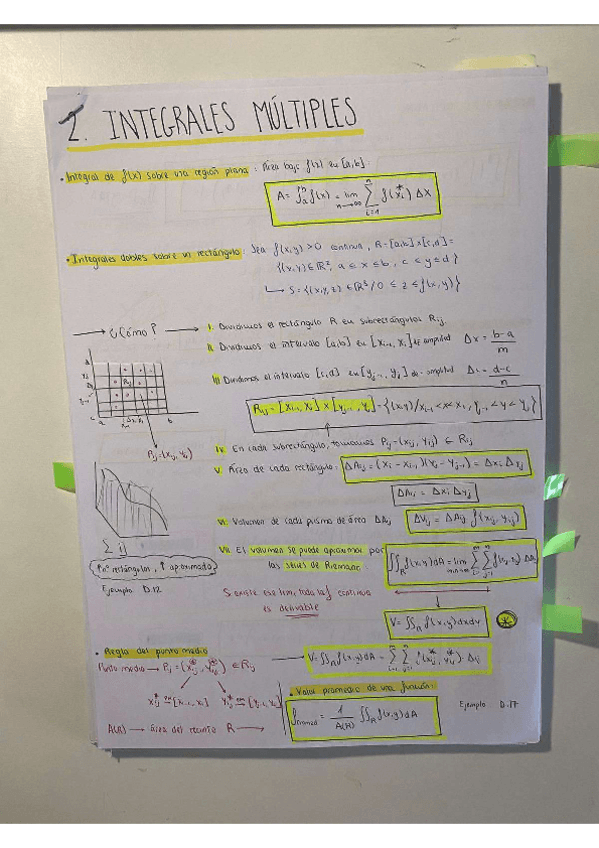 2. INTEGRALES MÚLTIPLES
• Integral de f(x) sobre una región plana : Área bajo f(x) en [a,b]:
A = ∫ₐᵇ f(x) = lim n→∞ Σ i=1 n f(xᵢ*) Δx
• Integrales dobles sobre un rectángulo : Sea f(x,y) > 0 continua , R = [a,b]x[c,d] =
= {(x,y) ∈ ℝ², a ≤ x ≤ b , c ≤ y ≤ d}
↳ S = {(x,y,z) ∈ ℝ³ / 0 ≤ z ≤ f(x,y)}
→ ¿Cómo? → I. Dividimos el rectángulo R en subrectángulos Rij.
II. Dividimos el intervalo [a,b] en [xi-1, xi] de amplitud Δx = b-a / m
III. Dividimos el intervalo [c,d] en [yj-1, yj] de amplitud d-c / n
Rij = [xi-1, xi] x [yj-1, yj] = {(x,y) / xi-1 < x < xi, yj-1 < y < yj}
Rij
a b
Pij = (xij, yij)
IV. En cada subrectángulo, tomamos Pij = (xij, yij) ∈ Rij
V. Área de cada rectángulo : ΔAij = (xi - xi-1)(yj - yj-1) = Δxi Δyj
ΔAij = Δxi Δyj
VI. Volumen de cada prisma de área ΔAij ΔVij = ΔAij f(xij, yij)
VII. El volumen se puede aproximar por
las series de Riemann : ∫∫R f(x,y) dA = lim m,n→∞ Σ i=1 m Σ j=1 n f(xij, yij) ΔA
↑ nº rectángulos , ↑ aproximado
Ejemplo D.12
Si existe ese lim, toda f continua
es derivable
V = ∫∫R f(x,y) dxdy
• Regla del punto medio
Punto medio → Pij = (xij*, yij*) ∈ Rij
V = ∫∫R f(x,y) dA = Σ i=1 Σ j=1 f(xij*, yij*) · Δij
xij* en [xi-1, xi] yij* en [yj-1, yj]
A(R) → área del recinto R →
• Valor promedio de una función:
f promed = 1 / A(R) ∫∫R f(x,y) dA
Ejemplo D.17